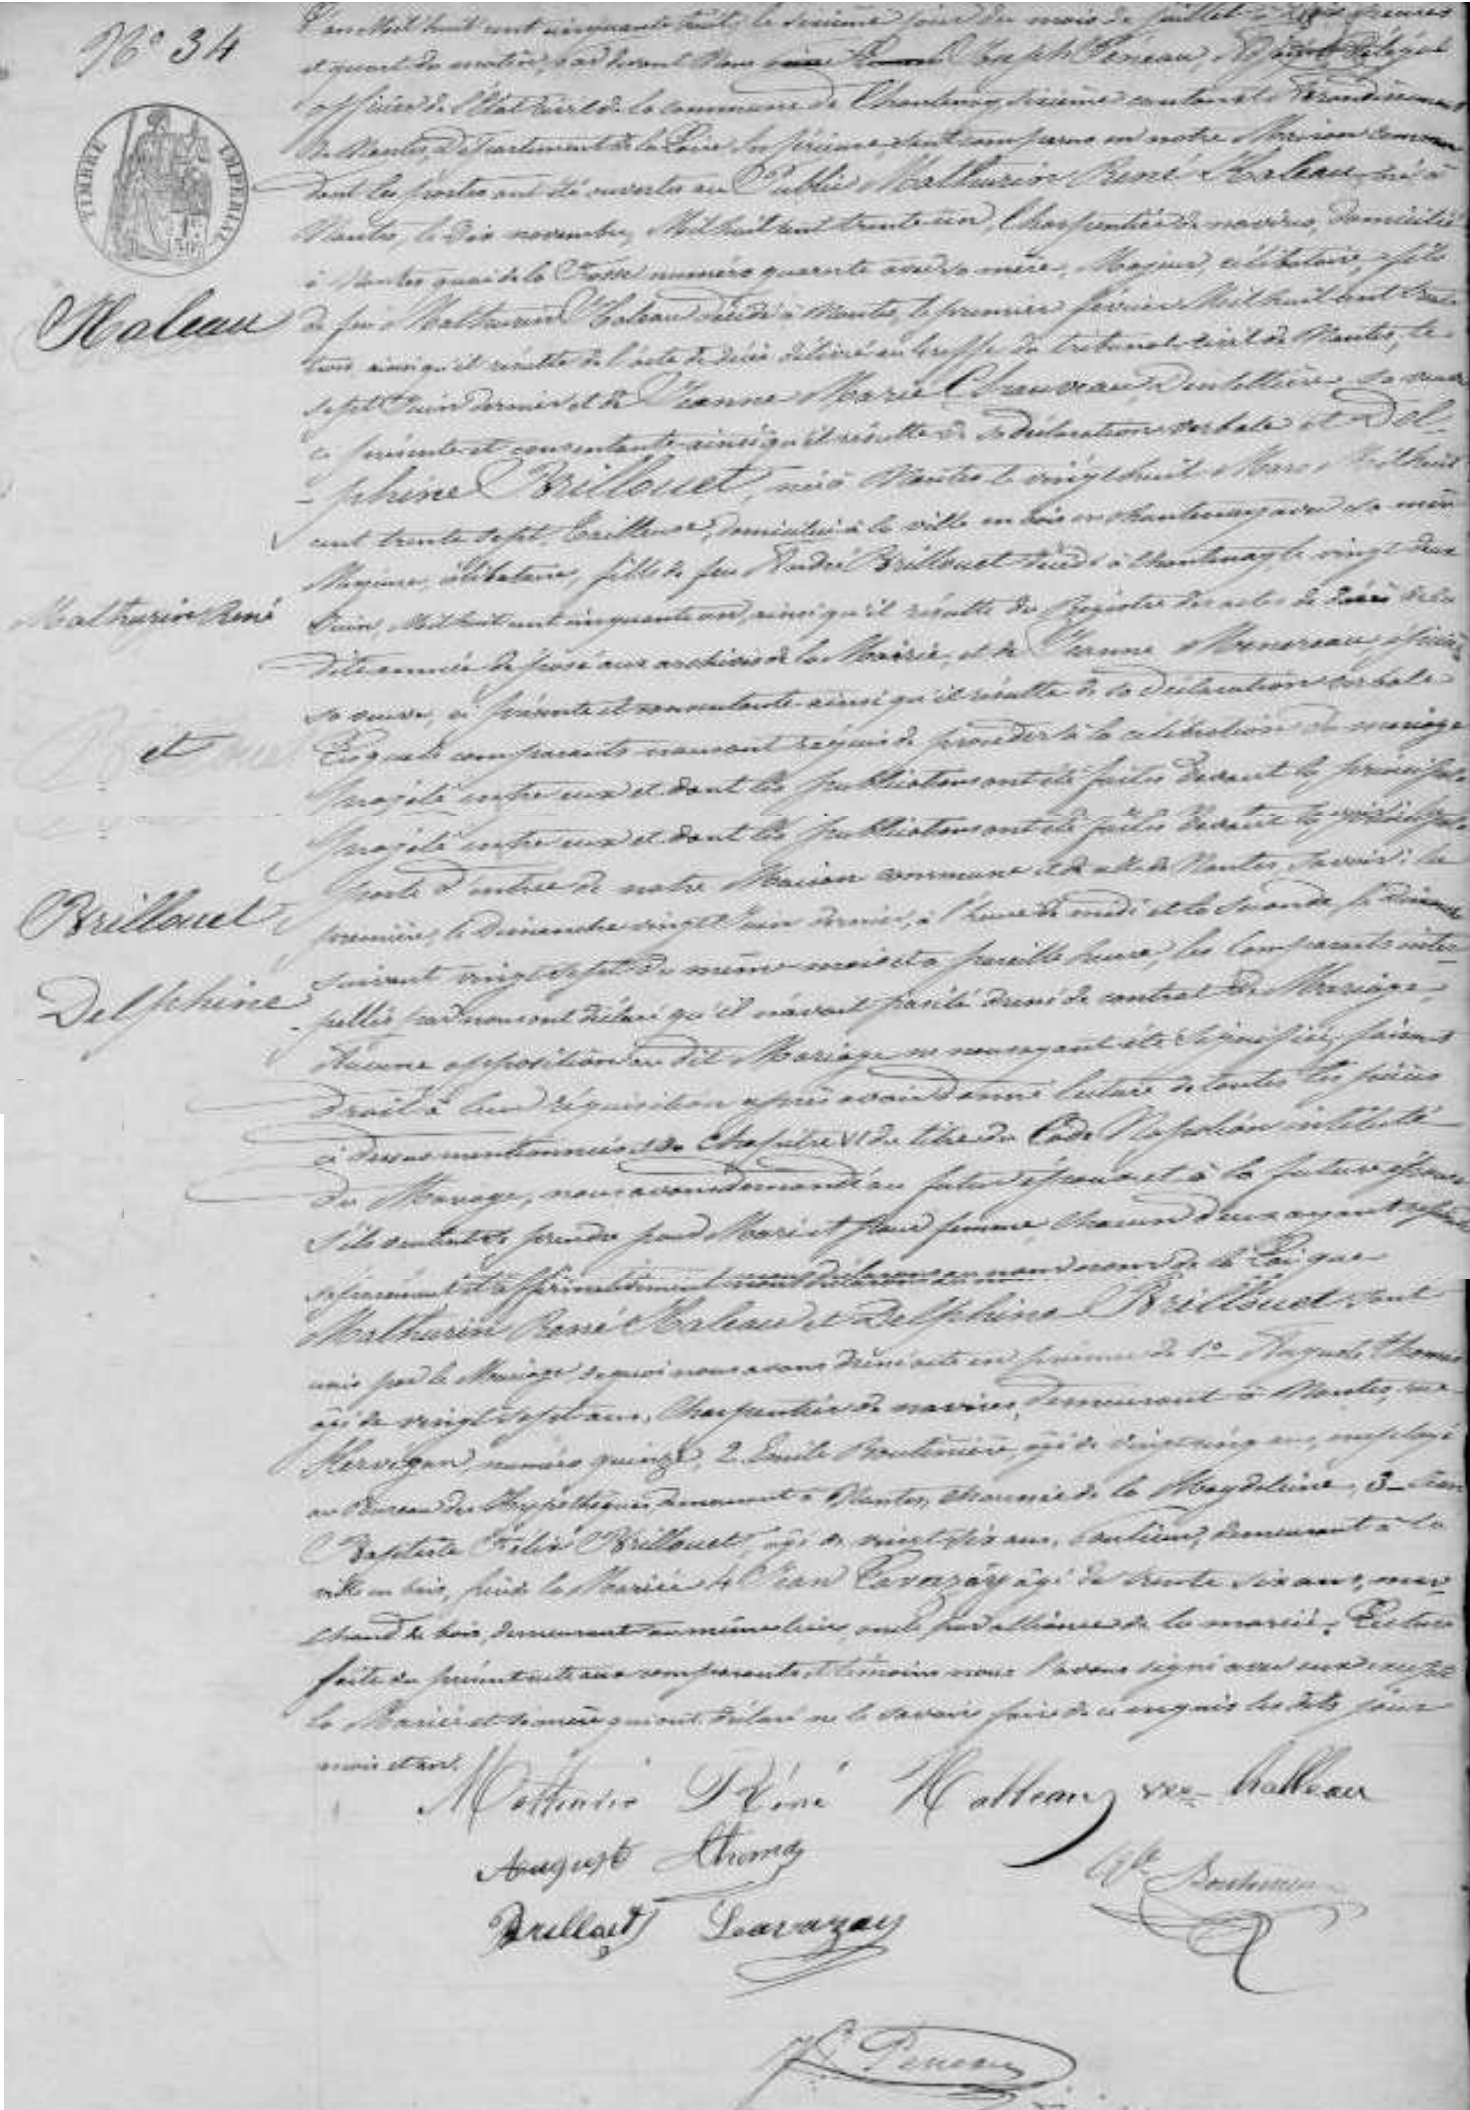 N° 34
TIMBRE IMPERIAL
Haleau
Mathurin René
et
Brillouet
Delphine
L'an Mil huit cent cinquante huit le sixième jour du mois de Juillet à heures
et quart du matin, par devant Nous Joseph Péneau, Adjoint Délégué
officier de l'État civil de la commune de Chantenay sixième canton et Arrondissement
de Nantes, Département de la Loire Inférieure, sont comparus en notre Maison commune
dont les portes ont été ouvertes au Public Mathurin René Haleau né à
Nantes, le Dix novembre Mil huit cent trente un, Charpentier de navires, domicilié
à Nantes quai de la Fosse numéro quarante avec sa mère, Majeur, célibataire, fils
de feu Mathurin Haleau décédé à Nantes, le premier février Mil huit cent
trois ainsi qu'il résulte de l'acte de décès délivré au Greffe du tribunal civil de Nantes, le
sept Juin dernier et de Jeanne Marie Chauveau, sa veuve
ci présente et consentante ainsi qu'il résulte de sa déclaration verbale et Del-
-phine Brillouet, née à Nantes le vingt huit Mars Mil huit
cent trente sept, Tailleuse, domiciliée à la ville en bois en Chantenay avec sa mère
Majeure, célibataire, fille de feu André Brillouet décédé à Chantenay le vingt deux
Juin Mil huit cent cinquante un, ainsi qu'il résulte du Registre des actes de décès de la
dite année déposé aux archives de la Mairie, et de Jeanne Monereau,
sa veuve, ci présente et consentante ainsi qu'il résulte de sa déclaration verbale
Lesquels comparants nous ont requis de procéder à la célébration du mariage
projeté entre eux et dont les publications ont été faites devant la principale
projeté entre eux et dont les publications ont été faites devant la principale
porte d'entrée de notre Maison commune et de celle de Nantes, savoir: la
première, le Dimanche vingt Juin dernier, à l'heure de midi et la seconde, le Dimanche
suivant vingt sept du même mois et à pareille heure, les Comparants inter-
-pellés par nous ont déclaré qu'il n'avait pas été dressé de contrat de Mariage,
Aucune opposition au dit Mariage ne nous ayant été signifiée, faisant
droit à leur réquisition après avoir donné lecture de toutes les pièces
ci dessus mentionnées et du chapitre VI du titre du Code Napoléon intitulé
du Mariage, nous avons demandé au futur époux et à la future épouse
s'ils veulent se prendre pour Mari et pour femme, Chacun d'eux ayant répondu
séparément et affirmativement nous déclarons au nom de la Loi que
Mathurin René Haleau et Delphine Brillouet sont
unis par le Mariage, de quoi nous avons dressé acte en présence de 1° Auguste Thomas
âgé de vingt sept ans, Charpentier de navires, demeurant à Nantes, rue
Kervégan, numéro quinze, 2 Emile Boutinière, âgé de vingt cinq ans, employé
au Bureau des Hypothèques demeurant à Nantes, chaussée de la Magdeleine, 3_ Jean
Baptiste Félix Brillouet, âgé de vingt six ans, demeurant à la
ville en bois, frère de la Mariée 4 Jean Lavazay âgé de trente six ans, mar
chand de bois, demeurant au même lieu, oncle par alliance de la mariée. Lecture
faite du présent acte aux comparants et témoins nous l'avons signé avec eux excepté
la Mariée et sa mère qui ont déclaré ne le savoir faire de ce enquis les dits jour
mois et an.
Mathurin René Halleau vve Halleau
August Thomas
Brillouet Lavazay
Boutinière
J Péneau